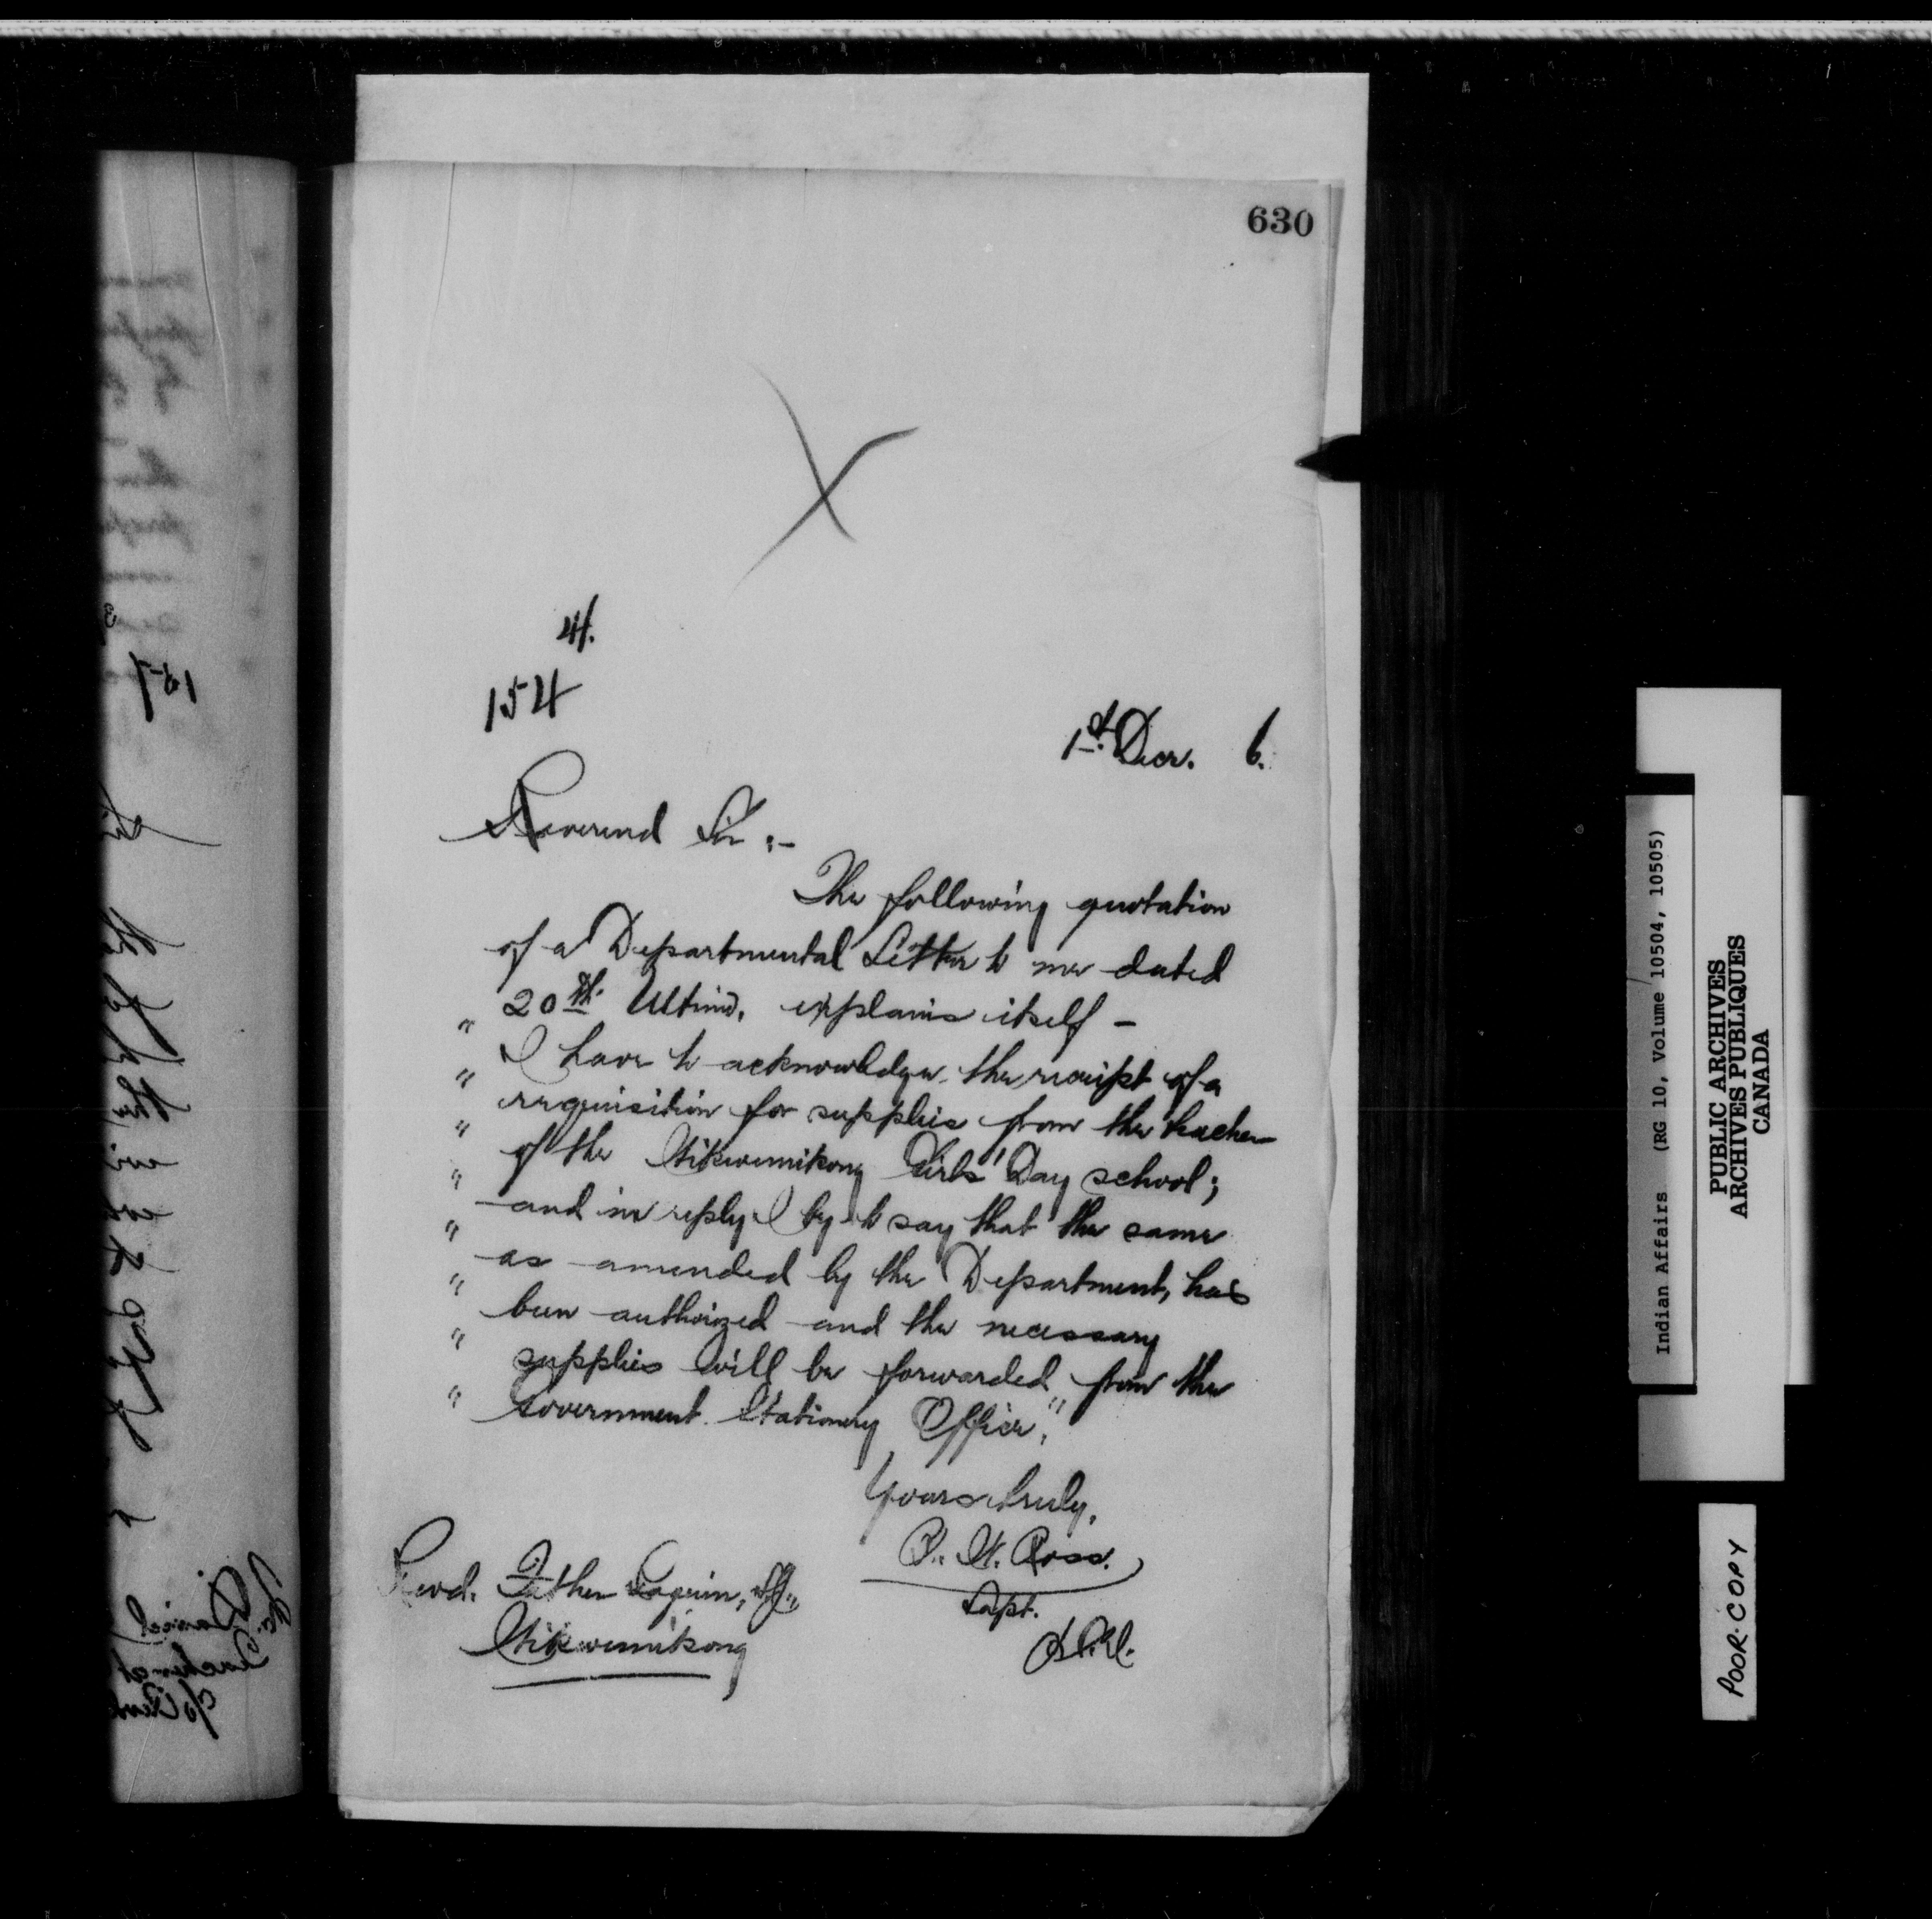 630
4.
154
1st Decr. 6.
Reverend Sir :-
The following quotation
of a Departmental Letter to me dated
20th Ultimo, explains itself -
" I have to acknowledge the receipt of a
" requisition for supplies from the teacher
" of the Wikwemikong Girls' Day school;
" and in reply I beg to say that the same
" as amended by the Department, has
" been authorized and the necessary
" supplies will be forwarded from the
" Government Stationery Office."
Yours truly,
B. W. Ross.
Supt.
Revd. Father
Wikwemikong
Indian Affairs (RG 10, Volume 10504, 10505)
PUBLIC ARCHIVES
ARCHIVES PUBLIQUES
CANADA
POOR COPY